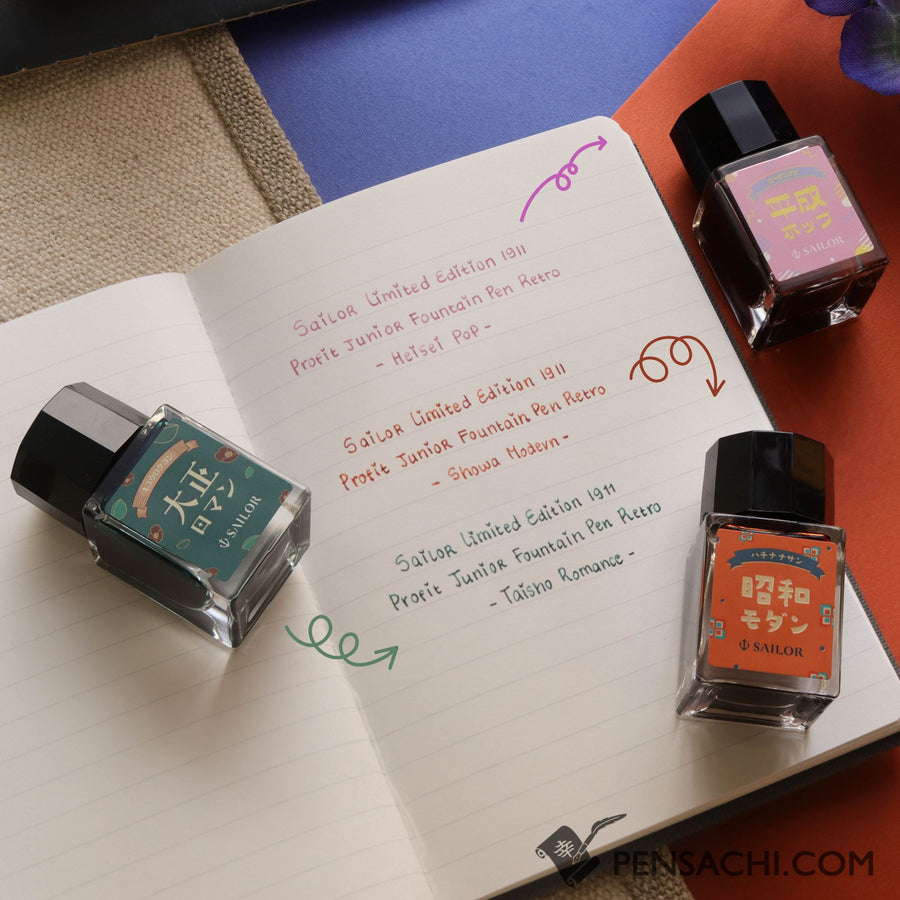 Sailor Limited Edition 1911
Profit Junior Fountain Pen Retro
- Heisei Pop -
Sailor Limited Edition 1911
Profit Junior Fountain Pen Retro
- Showa Modern -
Sailor Limited Edition 1911
Profit Junior Fountain Pen Retro
- Taisho Romance -
平成
ポップ
SAILOR
大正
ロマン
SAILOR
ハチナナサン
昭和
モダン
SAILOR
幸
PENSACHI.COM